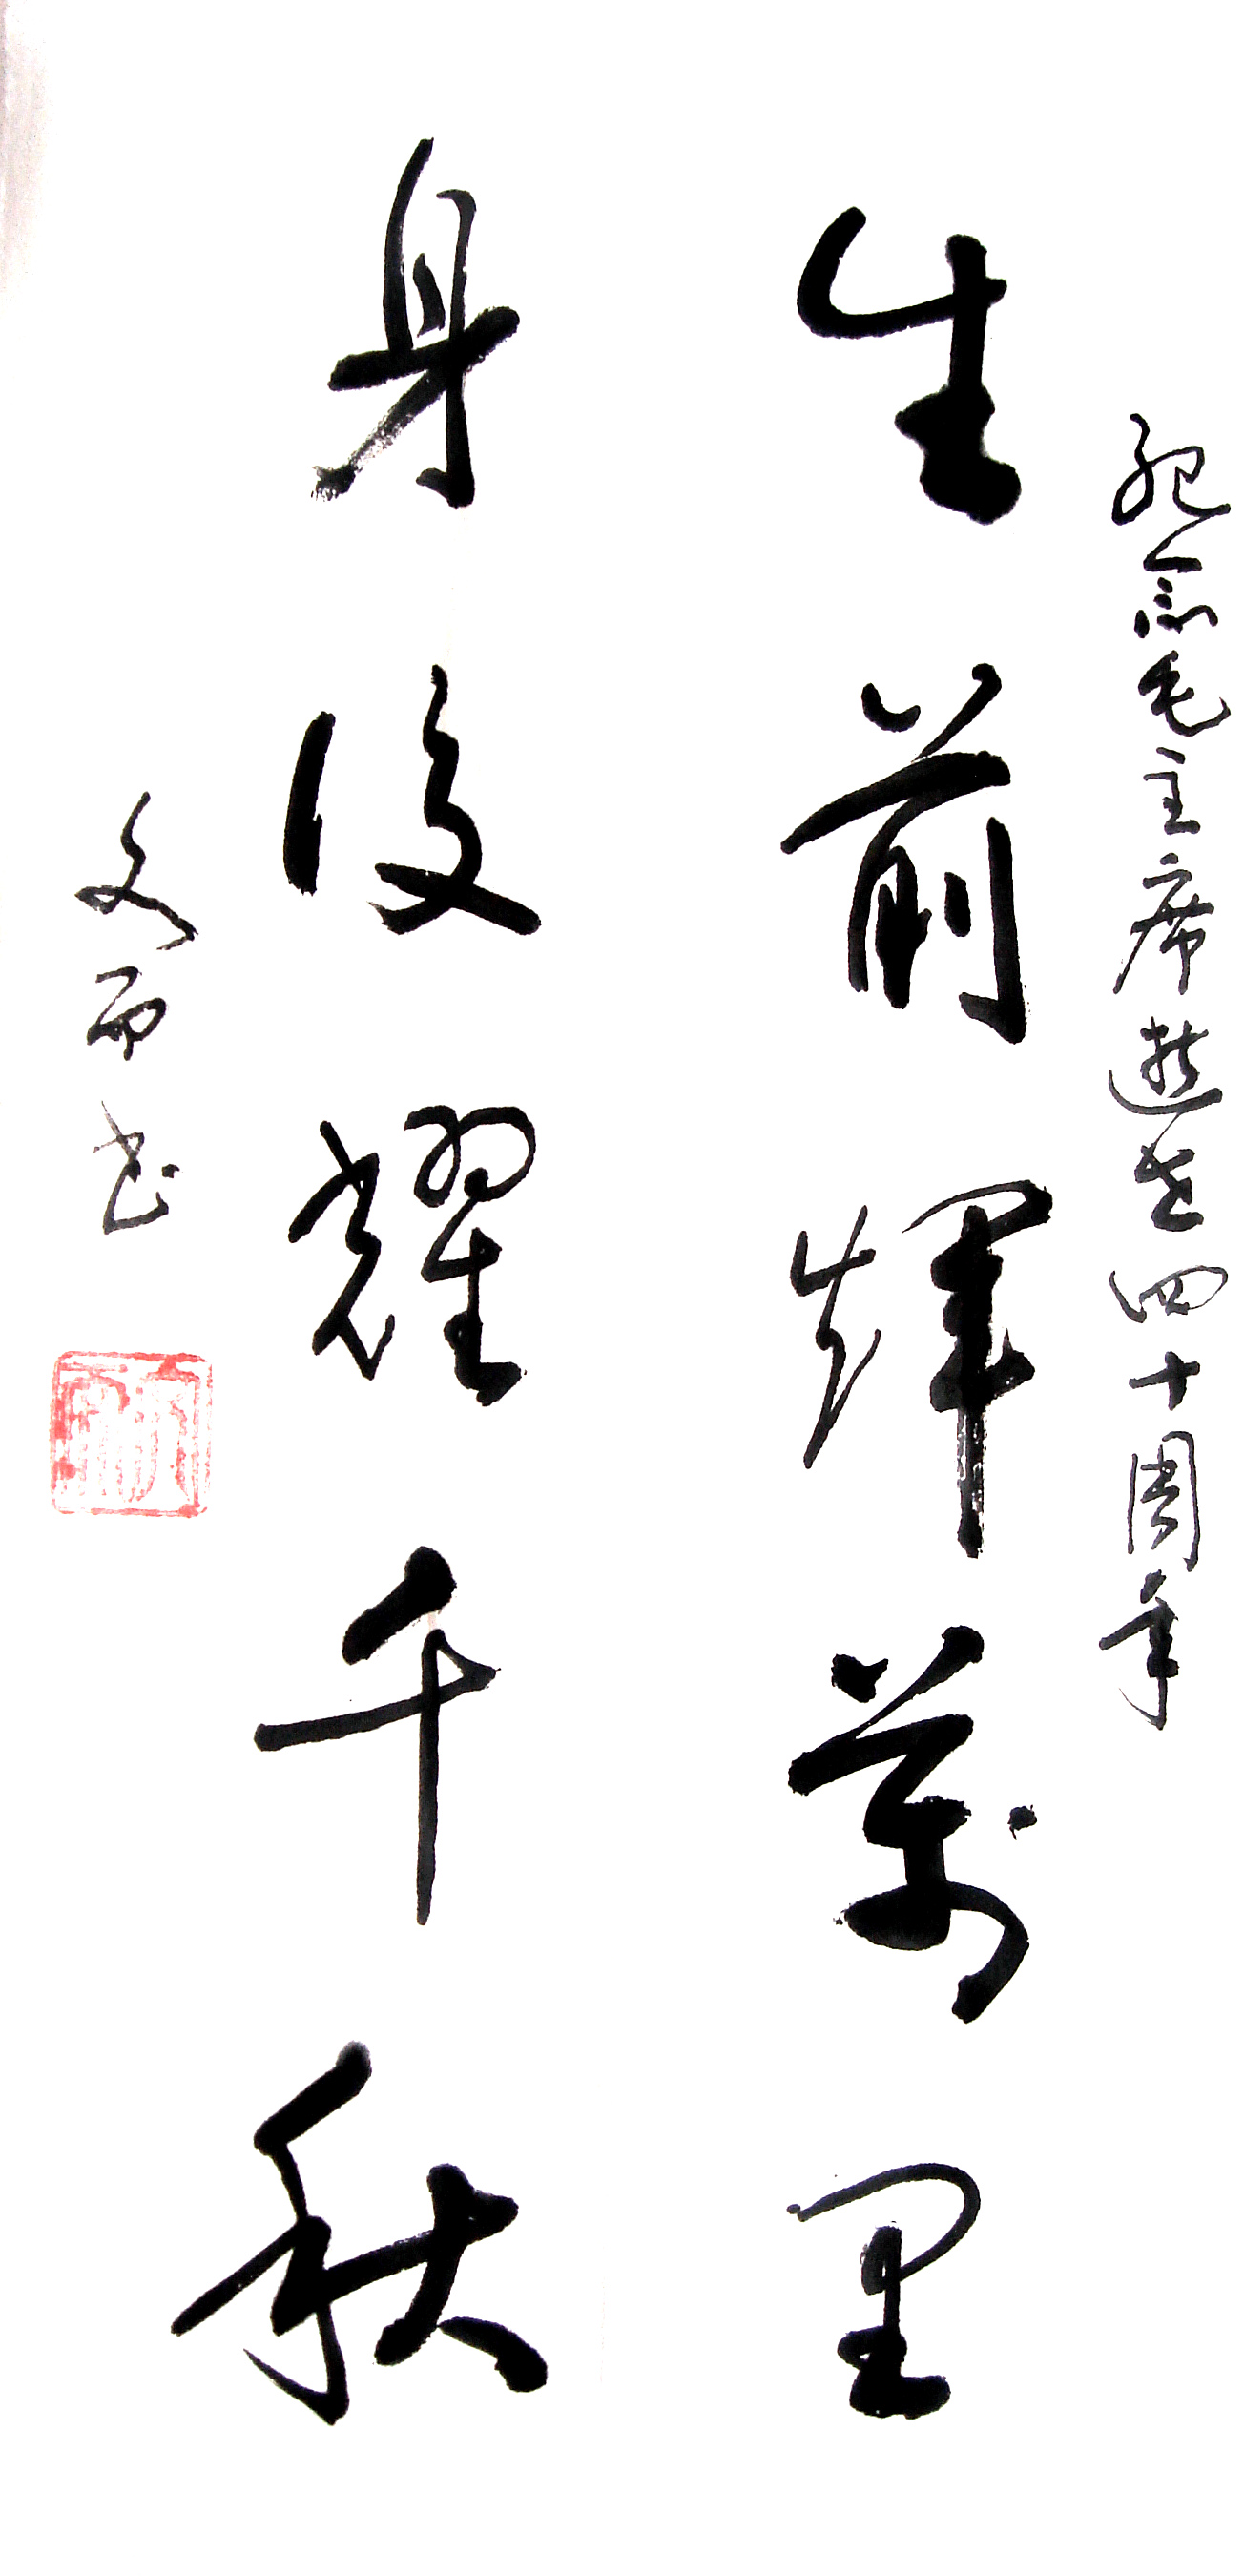 纪念毛主席逝世四十周年
生前輝萬里
身後耀千秋
文而书